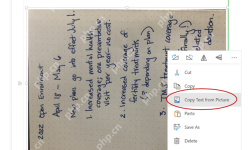 2022 Open Enrollment
April 18 - May 6
New plan effect July 1.
1. Increased mental health
coverage; one preventative
visit per year - no cost
2. increased coverage of
fertility treatments
depending on plan)
3. treatment coverage
Cut
Copy
Copy Text from Picture
Paste
Save As
Delete
php.cn